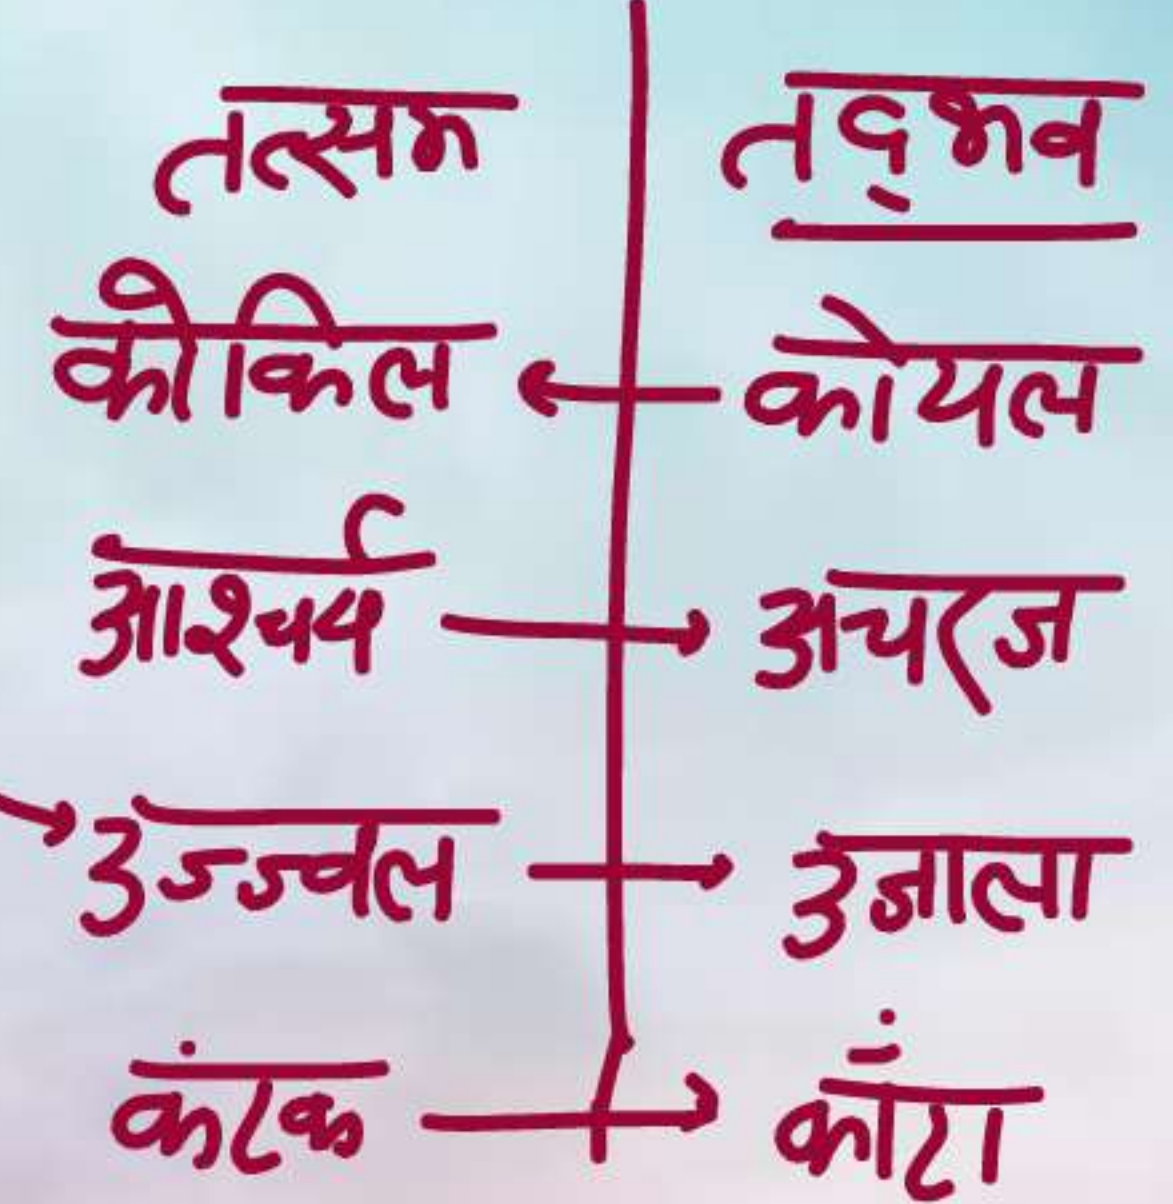 तत्सम तद्भव
कोकिल ← कोयल
आश्चर्य → अचरज
→ उज्ज्वल → उजाला
कंटक → काँटा